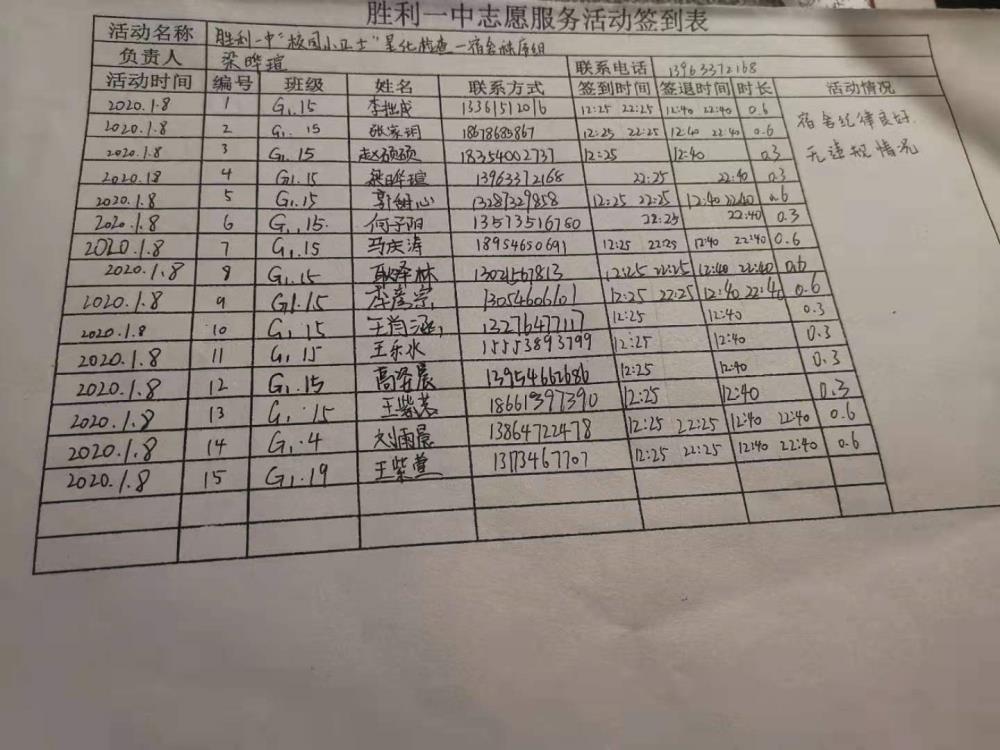 胜利一中志愿服务活动签到表
活动名称 胜利一中"校园小卫士"量化检查—宿舍秩序组
负责人 梁晔瑄 联系电话 13963372168
活动时间 编号 班级 姓名 联系方式 签到时间 签退时间 时长 活动情况
2020.1.8 1 G1.15 李拙成 13361512016 12:25 22:25 12:40 22:40 0.6
宿舍纪律良好.
2020.1.8 2 G1.15 张家玥 18678685867 12:25 22:25 12:40 22:40 0.6
无违规情况
2020.1.8 3 G1.15 赵硕硕 18354002737 12:25 12:40 0.3
2020.1.8 4 G1.15 梁晔瑄 13963372168 22:25 22:40 0.3
2020.1.8 5 G1.15 郭树心 13287329858 12:25 22:25 12:40 22:40 0.6
2020.1.8 6 G1.15. 何子阳 13573516780 22:25 22:40 0.3
2020.1.8 7 G1.15 马庆涛 18954650691 12:25 22:25 12:40 22:40 0.6
2020.1.8 8 G1.15 耿泽林 13021567813 12:25 22:25 12:40 22:40 0.6
2020.1.8 9 G1.15 李彦宗 13054606101 12:25 22:25 12:40 22:40 0.6
2020.1.8 10 G1.15 王肖涵 13276477117 12:25 12:40 0.3
2020.1.8 11 G1.15 王乐水 15553893799 12:25 12:40 0.3
2020.1.8 12 G1.15 高泽晨 13954662686 12:25 12:40 0.3
2020.1.8 13 G1.15 王紫 18661397390 12:25 12:40 0.3
2020.1.8 14 G1.4 刘雨晨 13864722478 12:25 22:25 12:40 22:40 0.6
2020.1.8 15 G1.19 王紫萱 13173467707 12:25 22:25 12:40 22:40 0.6